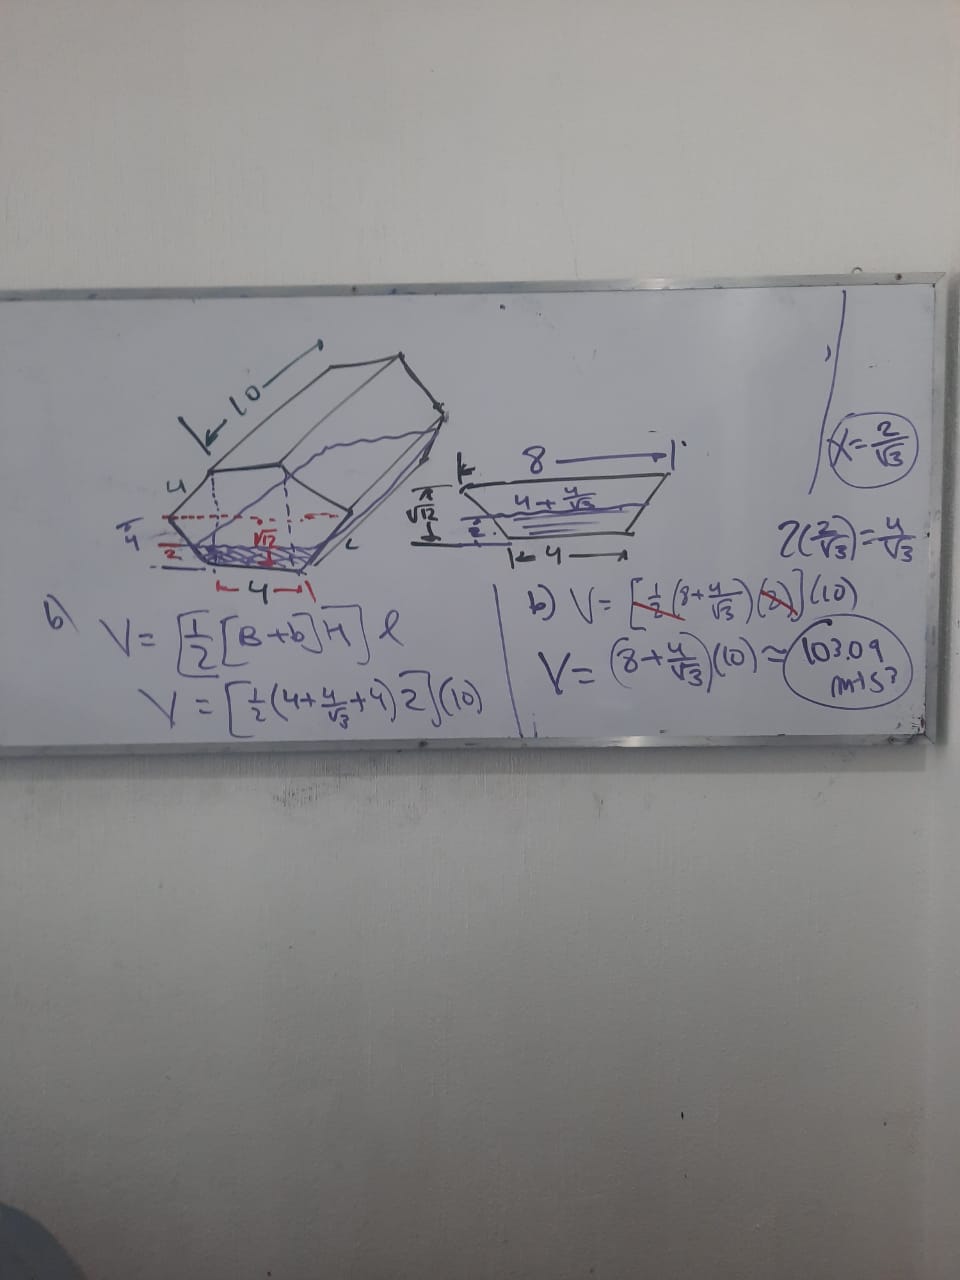 10
4
4
2
√12
4
L
8
√12
4 + 4/√3
2
4
X = 2/√3
2(2/√3) = 4/√3
b) V = [1/2 [B + b] H] l
V = [1/2 (4 + 4/√3 + 4) 2] (10)
b) V = [1/2 (8 + 4/√3) (2)] (10)
V = (8 + 4/√3) (10) ≈ 103.09
mts³